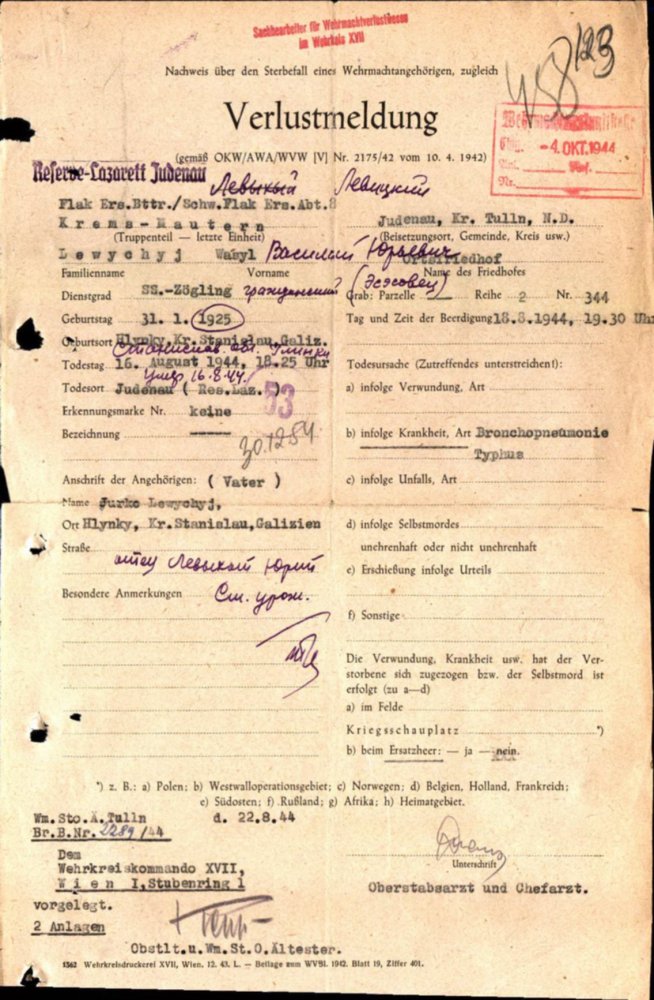 Sachbearbeiter für Wehrmachtverlustwesen
im Wehrkreis XVII
123
Nachweis über den Sterbefall eines Wehrmachtangehörigen, zugleich
Verlustmeldung
(gemäß OKW/AWA/WVW [V] Nr. 2175/42 vom 10. 4. 1942)
-4. OKT. 1944
Reserve-Lazarett Judenau
Левыхый Левицкий
Flak Ers.Bttr./Schw.Flak Ers.Abt.8
Krems-Mautern
(Truppenteil — letzte Einheit)
Judenau, Kr. Tulln, N.D.
(Beisetzungsort, Gemeinde, Kreis usw.)
Lewychyj Wasyl Василий Юрьевич
Ortsfriedhof
Familienname Vorname
Name des Friedhofes
Dienstgrad SS.-Zögling гражданский (Эсэсовец)
Grab: Parzelle — Reihe 2 Nr. 344
Geburtstag 31. 1. 1925
Tag und Zeit der Beerdigung 18.8.1944, 19.30 Uhr
Geburtsort Hlynky, Kr.Stanislau,Galiz.
Станислав обл. Глинки
Todestag 16. August 1944, 18.25 Uhr
умер 16.8.44г
Todesort Judenau ( Res.Laz. )
53
Erkennungsmarke Nr. keine
Bezeichnung
301254
Todesursache (Zutreffendes unterstreichen!):
a) infolge Verwundung, Art
b) infolge Krankheit, Art Bronchopneumonie
Typhus
Anschrift der Angehörigen: ( Vater )
Name Jurko Lewychyj,
Ort Hlynky, Kr.Stanislau,Galizien
Straße
отец Левыхый Юрий
Besondere Anmerkungen См. урож.
c) infolge Unfalls, Art
d) infolge Selbstmordes
unehrenhaft oder nicht unehrenhaft
e) Erschießung infolge Urteils
f) Sonstige
Die Verwundung, Krankheit usw. hat der Ver-
storbene sich zugezogen bzw. der Selbstmord ist
erfolgt (zu a—d)
a) im Felde
Kriegsschauplatz *)
b) beim Ersatzheer: — ja — nein.
*) z. B.: a) Polen; b) Westwalloperationsgebiet; c) Norwegen; d) Belgien, Holland, Frankreich;
e) Südosten; f) Rußland; g) Afrika; h) Heimatgebiet.
Wm.Sto.Ä.Tulln d. 22.8.44
Br.B.Nr. 2289/44
Dem
Wehrkreiskommando XVII,
Wien I,Stubenring 1
vorgelegt.
2 Anlagen
Obstlt.u.Wm.St.O.Ältester.
Unterschrift
Oberstabsarzt und Chefarzt.
1562 Wehrkreisdruckerei XVII, Wien. 12. 43. L. — Beilage zum WVBl. 1942. Blatt 19, Ziffer 401.